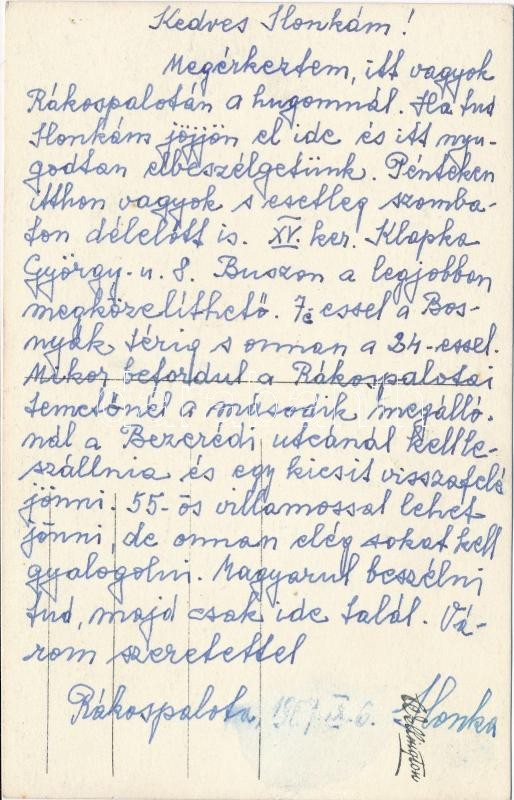 Kedves Ilonkám!
Megérkeztem, itt vagyok
Rákospalotán a hugomnál. Ha tud
Ilonkám jöjjön el ide és itt nyu-
godtan elbeszélgetünk. Pénteken
itthon vagyok s esetleg szomba-
ton délelőtt is. XV. ker. Klapka
György-u. 8. Buszon a legjobban
megközelíthető. 7 essel a Bos-
nyák térig s onnan a 24-essel.
Mikor befordul a Rákospalotai
temetőnél a második megálló-
nál a Bezerédi utcánál kell le-
szállnia és egy kicsit visszafelé
jönni. 55-ös villamossal lehet
jönni, de onnan elég sokat kell
gyalogolni. Magyarul beszélni
tud, majd csak ide talál. Vá-
rom szeretettel
Rákospalota, IX. 6. Ilonka